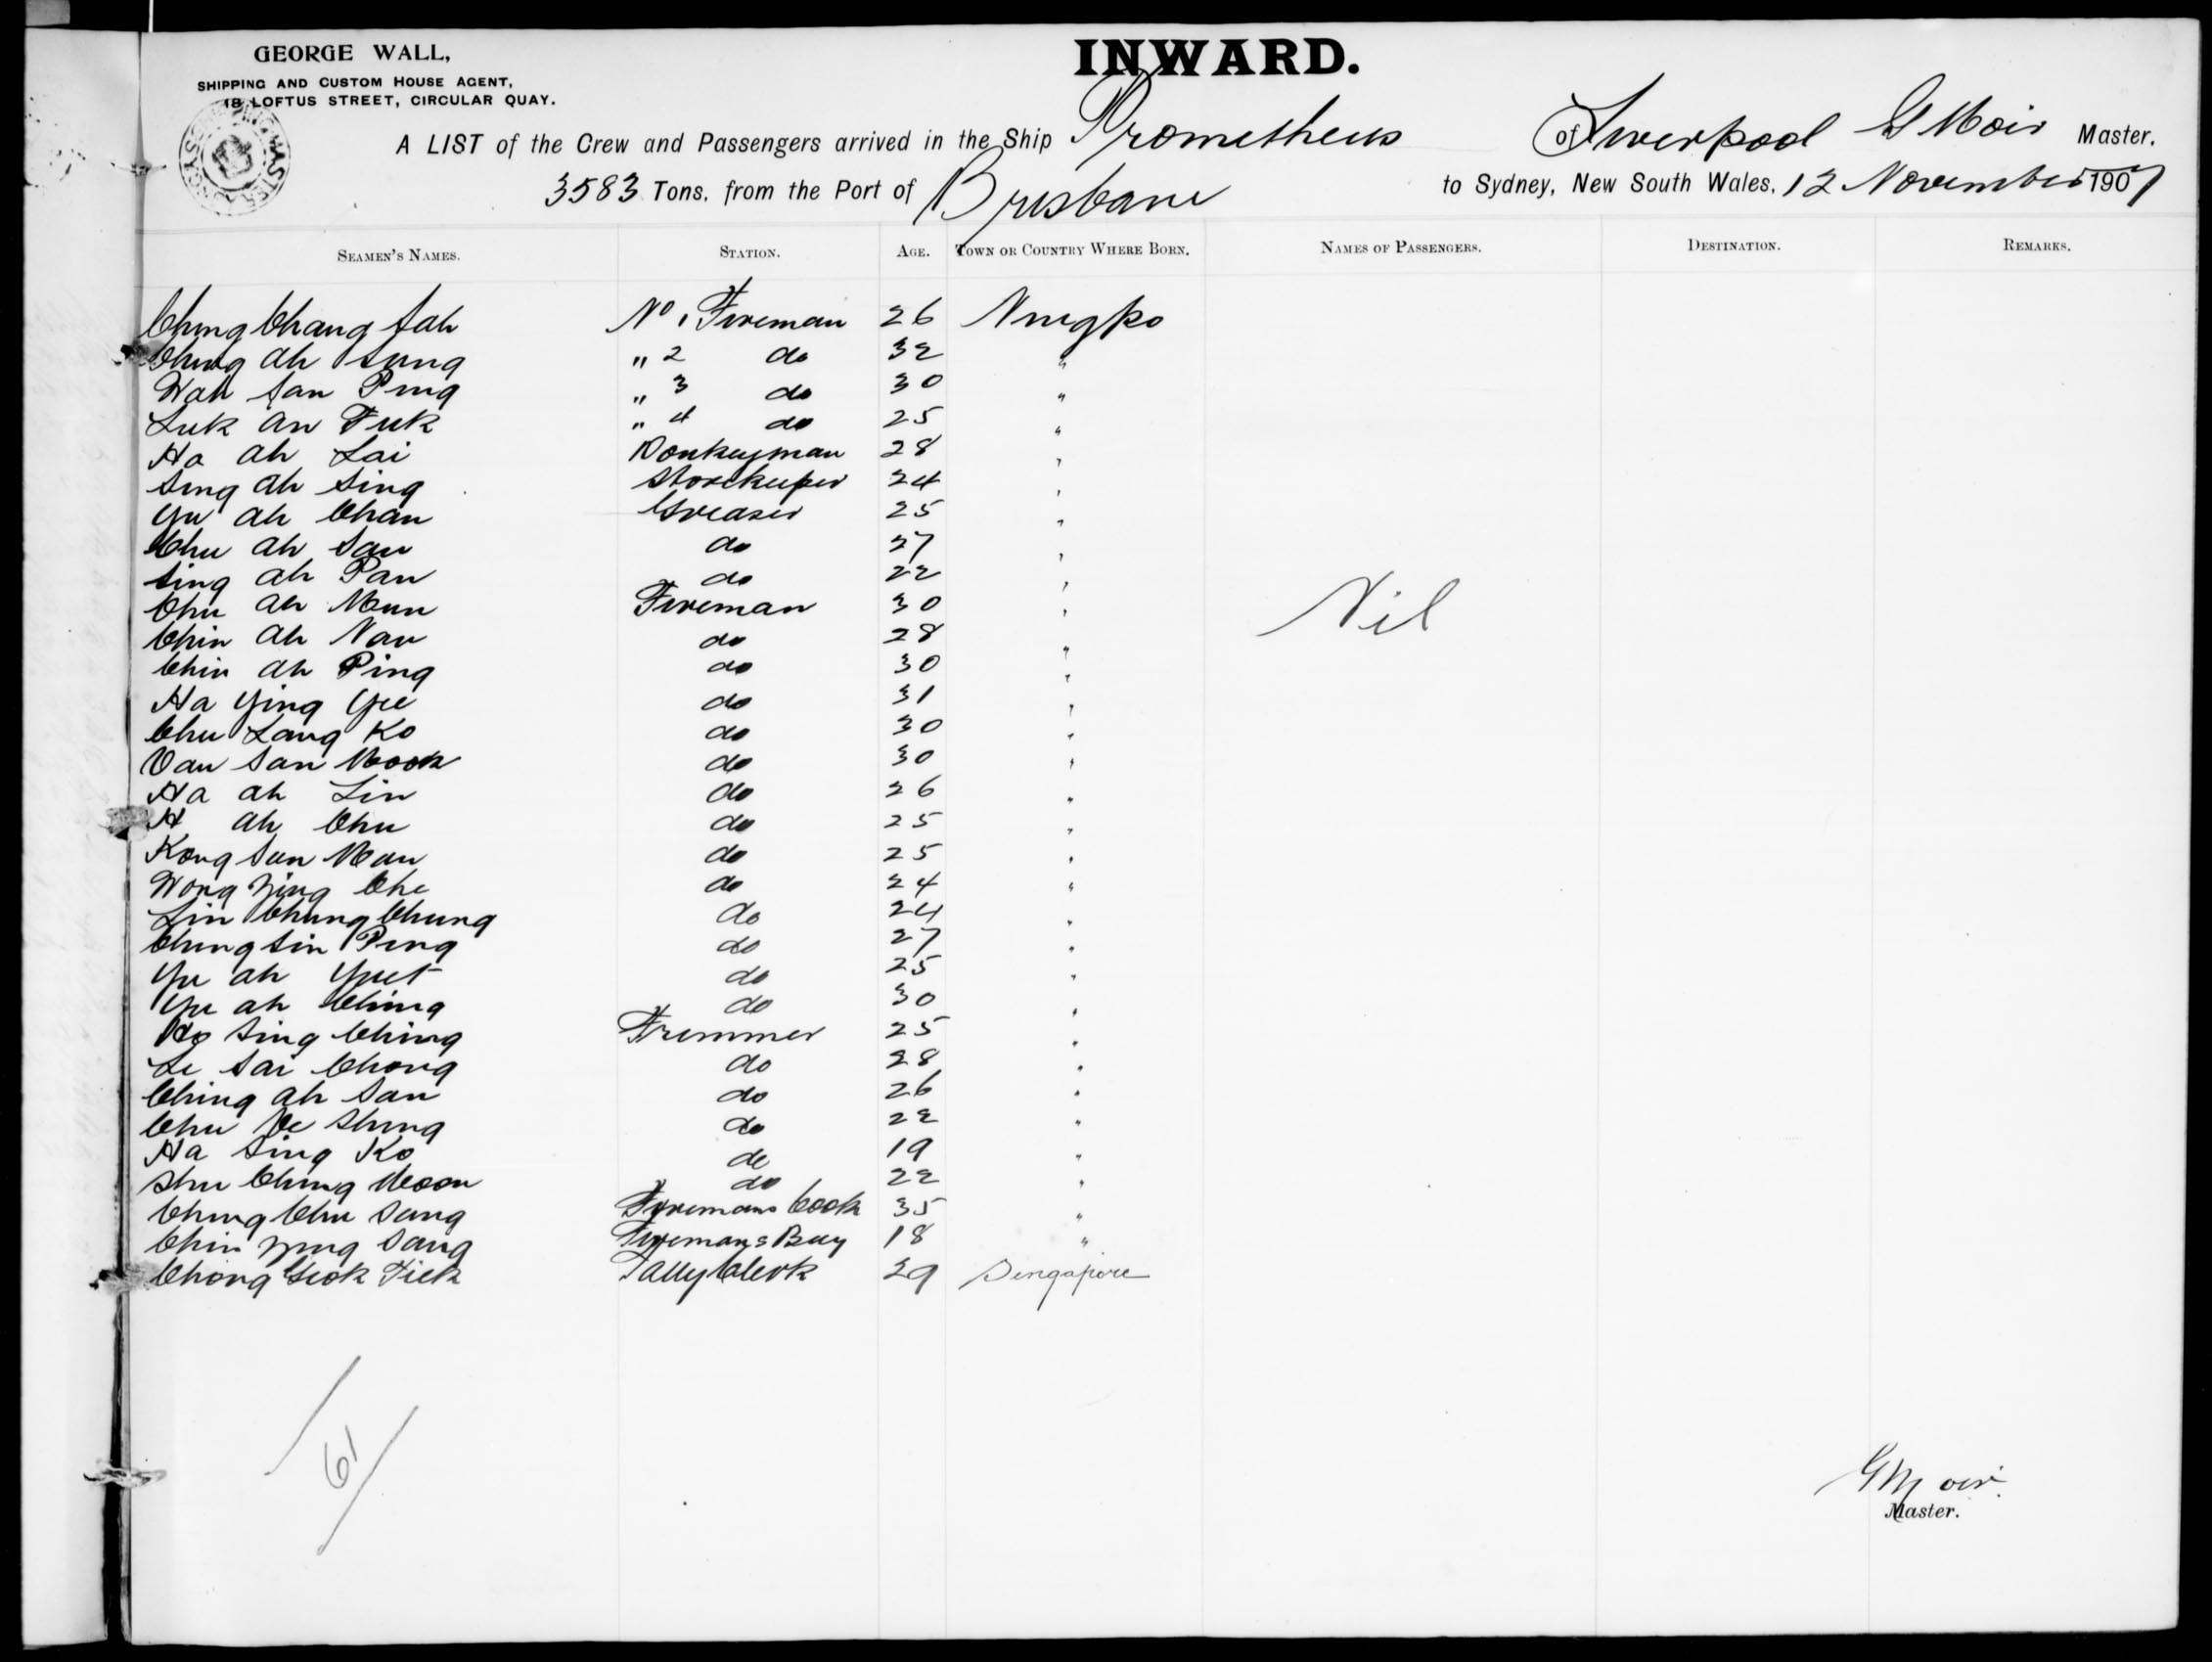 GEORGE WALL,
SHIPPING AND CUSTOM HOUSE AGENT,
18 LOFTUS STREET, CIRCULAR QUAY.
INWARD.
A LIST of the Crew and Passengers arrived in the Ship Prometheus of Liverpool G Moir Master.
3583 Tons, from the Port of Brisbane to Sydney, New South Wales, 12 November 1907
SEAMEN'S NAMES. STATION. AGE. TOWN OR COUNTRY WHERE BORN. NAMES OF PASSENGERS. DESTINATION. REMARKS.
Ching Chang Sah No 1 Fireman 26 Ningpo
Ching ah Sung " 2 do 32 "
Wah San Ping " 3 do 30 "
Luk an Fuk " 4 do 25 "
Ha ah Lai Donkeyman 28 "
Sing ah Sing Storekeeper 24 "
Yu ah Chan Greaser 25 "
Chu ah San do 27 "
Sing ah Pan do 22 "
Chu ah Mun Fireman 30 " Nil
Chin ah Nan do 28 "
Chin ah Ping do 30 "
Ha Ying Yee do 31 "
Chu Lang Ko do 30 "
Van San Mook do 30 "
Ha ah Lin do 26 "
H ah Chu do 25 "
Kong Sun Man do 25 "
Wong Zing Che do 24 "
Lin Chung Chung do 24 "
Chung Sin Ping do 27 "
Yu ah Yuet do 25 "
Yu ah Ching do 30 "
Ho Sing Ching Trimmer 25 "
Le Sai Chong do 28 "
Ching ah San do 26 "
Chu Ve Shing do 22 "
Ha Sing Ko do 19 "
Shu Ching Moon do 22 "
Ching Chu Sang Firemans Cook 35 "
Chin Zing Sang Firemans Boy 18 "
Chong Seok Tiek Tally Clerk 29 Singapore
61
G Moir
Master.